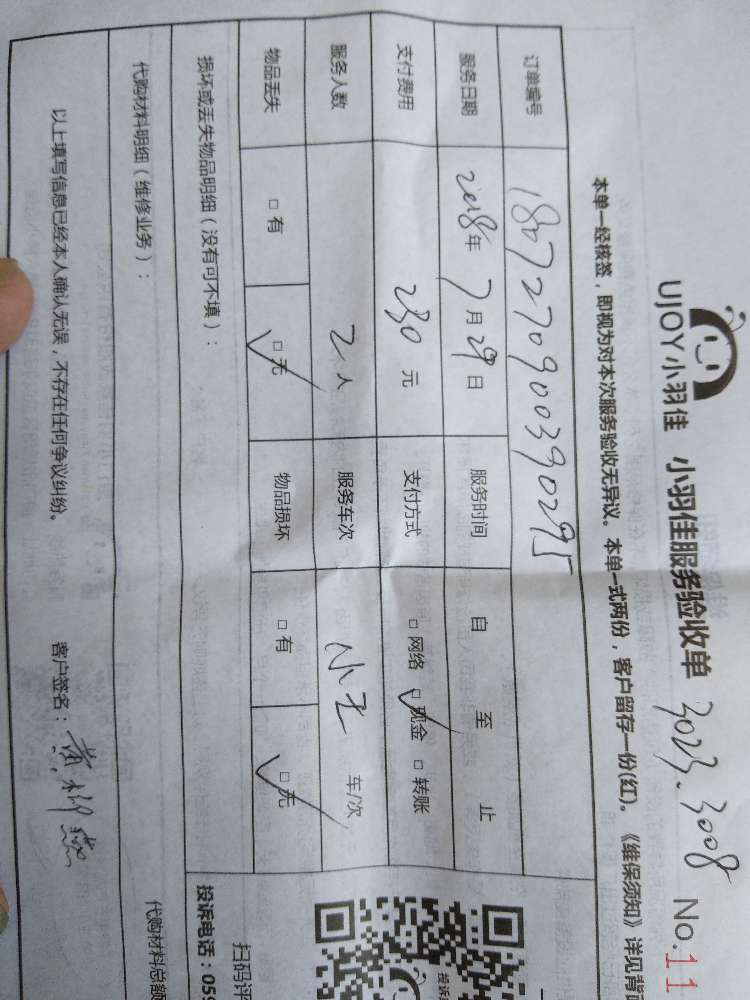 UJOY小羽佳 小羽佳服务验收单 3023.3008 No.11
本单一经核签，即视为对本次服务验收无异议。本单一式两份，客户留存一份(红)。《维保须知》详见背面
订单编号 1807270900390295
服务日期 2018年 7月 29日 服务时间 自 至 止
支付费用 230元 支付方式 □网络 □现金 □转账
服务人数 2人 服务车次 车/次
物品丢失 □有 □无 物品损坏 □有 □无
损坏或丢失物品明细（没有可不填）：
代购材料明细（维修业务）： 代购材料总额
以上填写信息已经本人确认无误，不存在任何争议纠纷。 客户签名：
投诉
扫码评
投诉电话：059